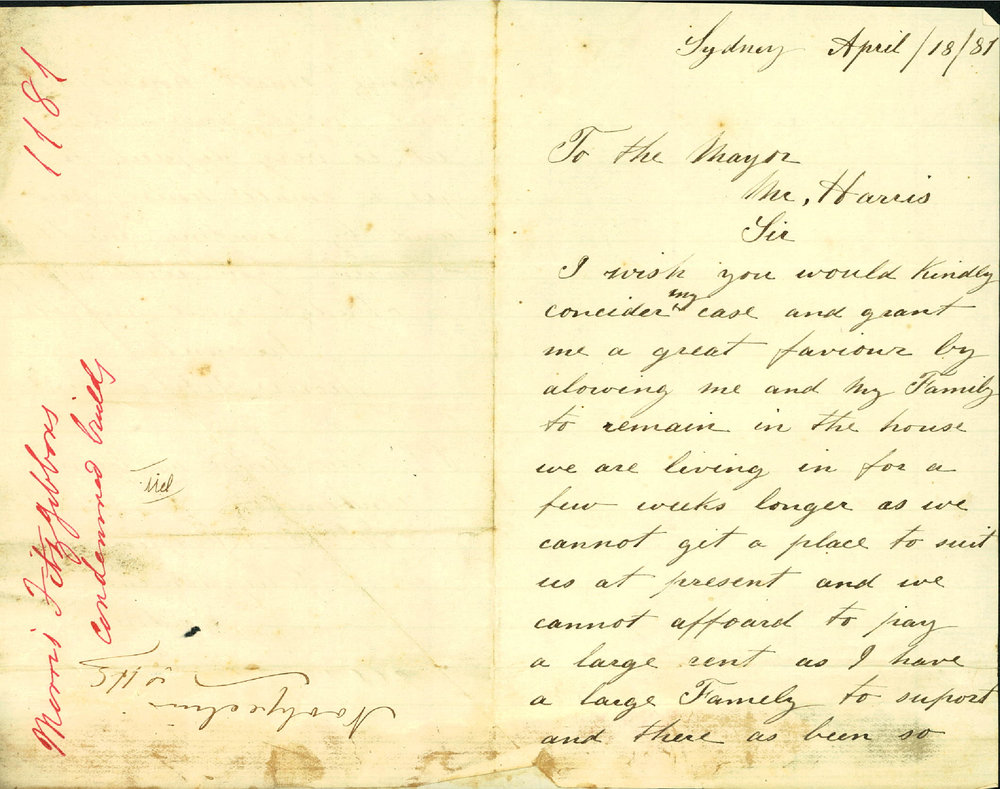 1181
Morris Fitzgibbons
condemned builds
Sydney April/18/81
To the Mayor
Mr, Harris
Sir
I wish you would Kindly
concider my case and grant
me a great faviour by
alowing me and My Family
to remain in the house
we are living in for a
few weeks longer as we
cannot get a place to suit
us at present and we
cannot affoard to pay
a large rent as I have
a large Famely to suport
and there as been so